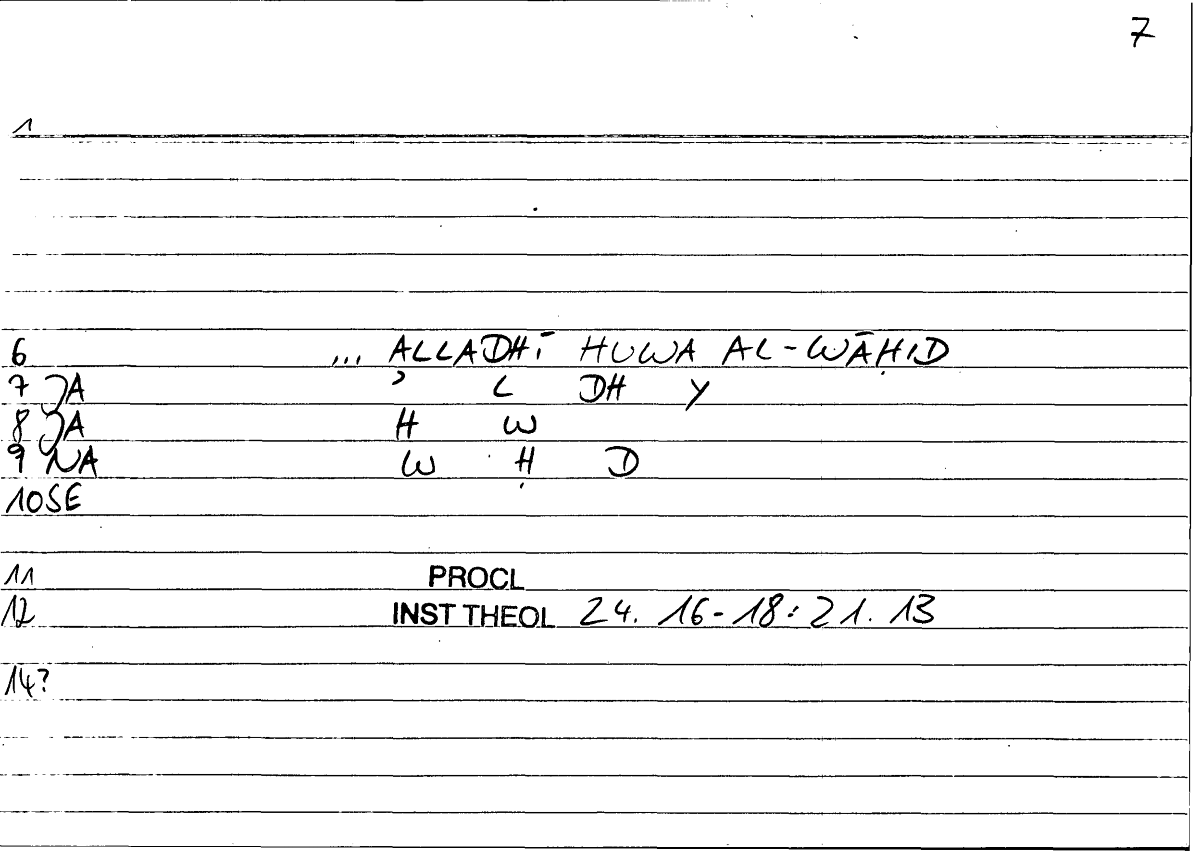 7
1
6 ... ALLADHĪ HUWA AL-WĀḤID
7 JA ʾ L DH Y
8 JA H W
9 NA W Ḥ D
10 SE
11 PROCL
12 INST THEOL 24. 16-18: 21. 13
14?